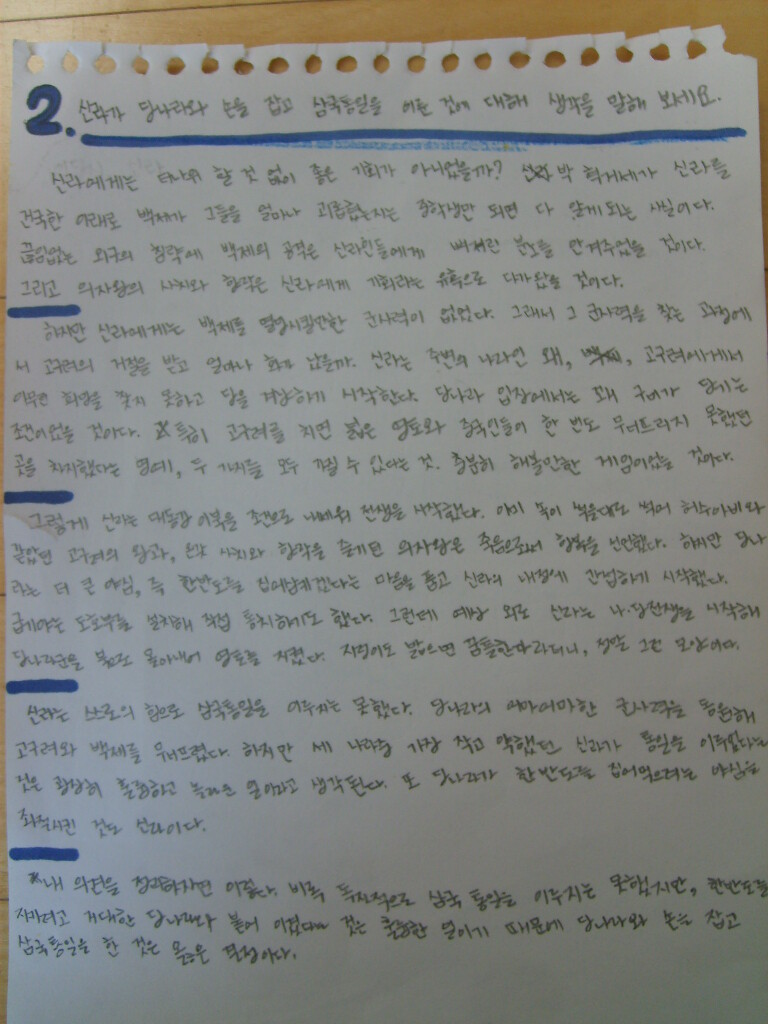 2. 신라가 당나라와 손을 잡고 삼국통일을 이룬 것에 대해 생각을 말해 보세요.
신라에게는 더나위 할 것 없이 좋은 기회가 아니었을까? 박혁거세가 신라를
건국한 이래로 백제가 그들을 얼마나 괴롭혔는지는 중학생만 되면 다 알게 되는 사실이다.
끊임없는 외구의 침략에 백제의 공격은 신라인들에게 뼈저린 분노를 안겨주었을 것이다.
그리고 의자왕의 사치와 향락은 신라에게 기회라는 유혹으로 다가왔을 것이다.
하지만 신라에게는 백제를 멸망시킬만한 군사력이 없었다. 그래니 그 군사력을 찾는 과정에
서 고구려의 거절을 받고 얼마나 화가 났을까. 신라는 주변의 나라인 왜, 고구려에게서
아무런 희망을 찾지 못하고 당을 겨냥하기 시작한다. 당나라 입장에서는 꽤 구미가 당기는
조건이었을 것이다. 특히 고구려를 치면 넓은 영토와 중국인들이 한 번도 무너뜨리지 못했던
곳을 차지했다는 명예, 두 가지를 모두 가질 수 있다는 것. 충분히 해볼만한 게임이었을 것이다.
그렇게 신라는 대동강 이북을 조건으로 전쟁을 시작했다. 이미 녹이 썩어 허수아비와
같았던 고구려의 왕과, 온갖 사치와 향락을 즐기던 의자왕은 죽음으로써 항복을 선언했다. 하지만 당나
라는 더 큰 야심, 즉 한반도를 집어삼키겠다는 마음을 품고 신라의 내정에 간섭하기 시작했다.
급기야는 도호부를 설치해 직접 통치하기도 했다. 그런데 예상 외로 신라는 나·당전쟁을 시작해
당나라군을 몰아내어 영토를 지켰다. 지렁이도 밟으면 꿈틀한다라더니, 정말 그런 모양이다.
신라는 스스로의 힘으로 삼국통일을 이루지는 못했다. 당나라의 어마어마한 군사력을 동원해
고구려와 백제를 무너뜨렸다. 하지만 세 나라중 가장 작고 약했던 신라가 통일을 이루었다는
것은 굉장히 훌륭하고 놀라운 일이라고 생각된다. 또 당나라가 한반도를 집어먹으려는 야심을
좌절시킨 것도 신라이다.
*내 의견을 정리하자면 이렇다. 비록 독자적으로 삼국 통일을 이루지는 못했지만, 한반도를
지키려고 거대한 당나라와 붙어 이겼다는 것은 훌륭한 일이기 때문에 당나라와 손을 잡고
삼국통일을 한 것은 옳은 결정이다.